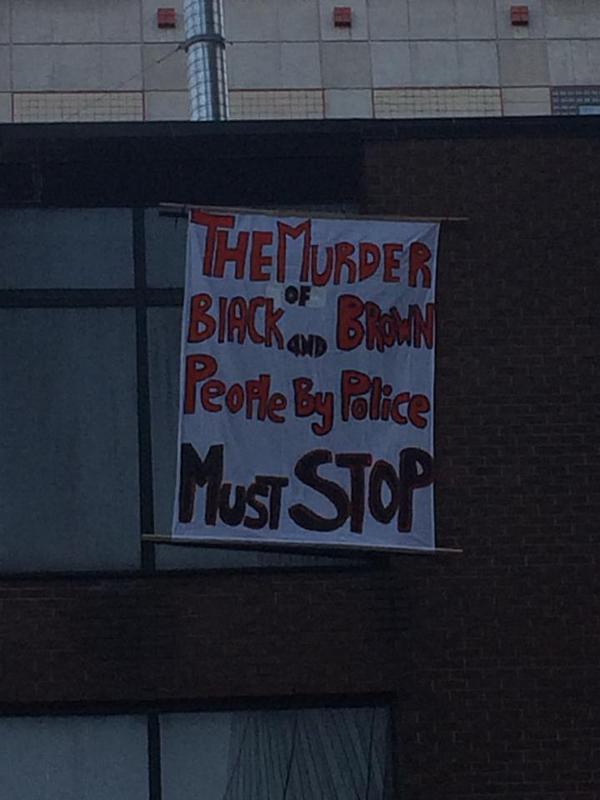 THE MURDER
OF
BlACK AND BROWN
PeoPle By Police
MUST STOP